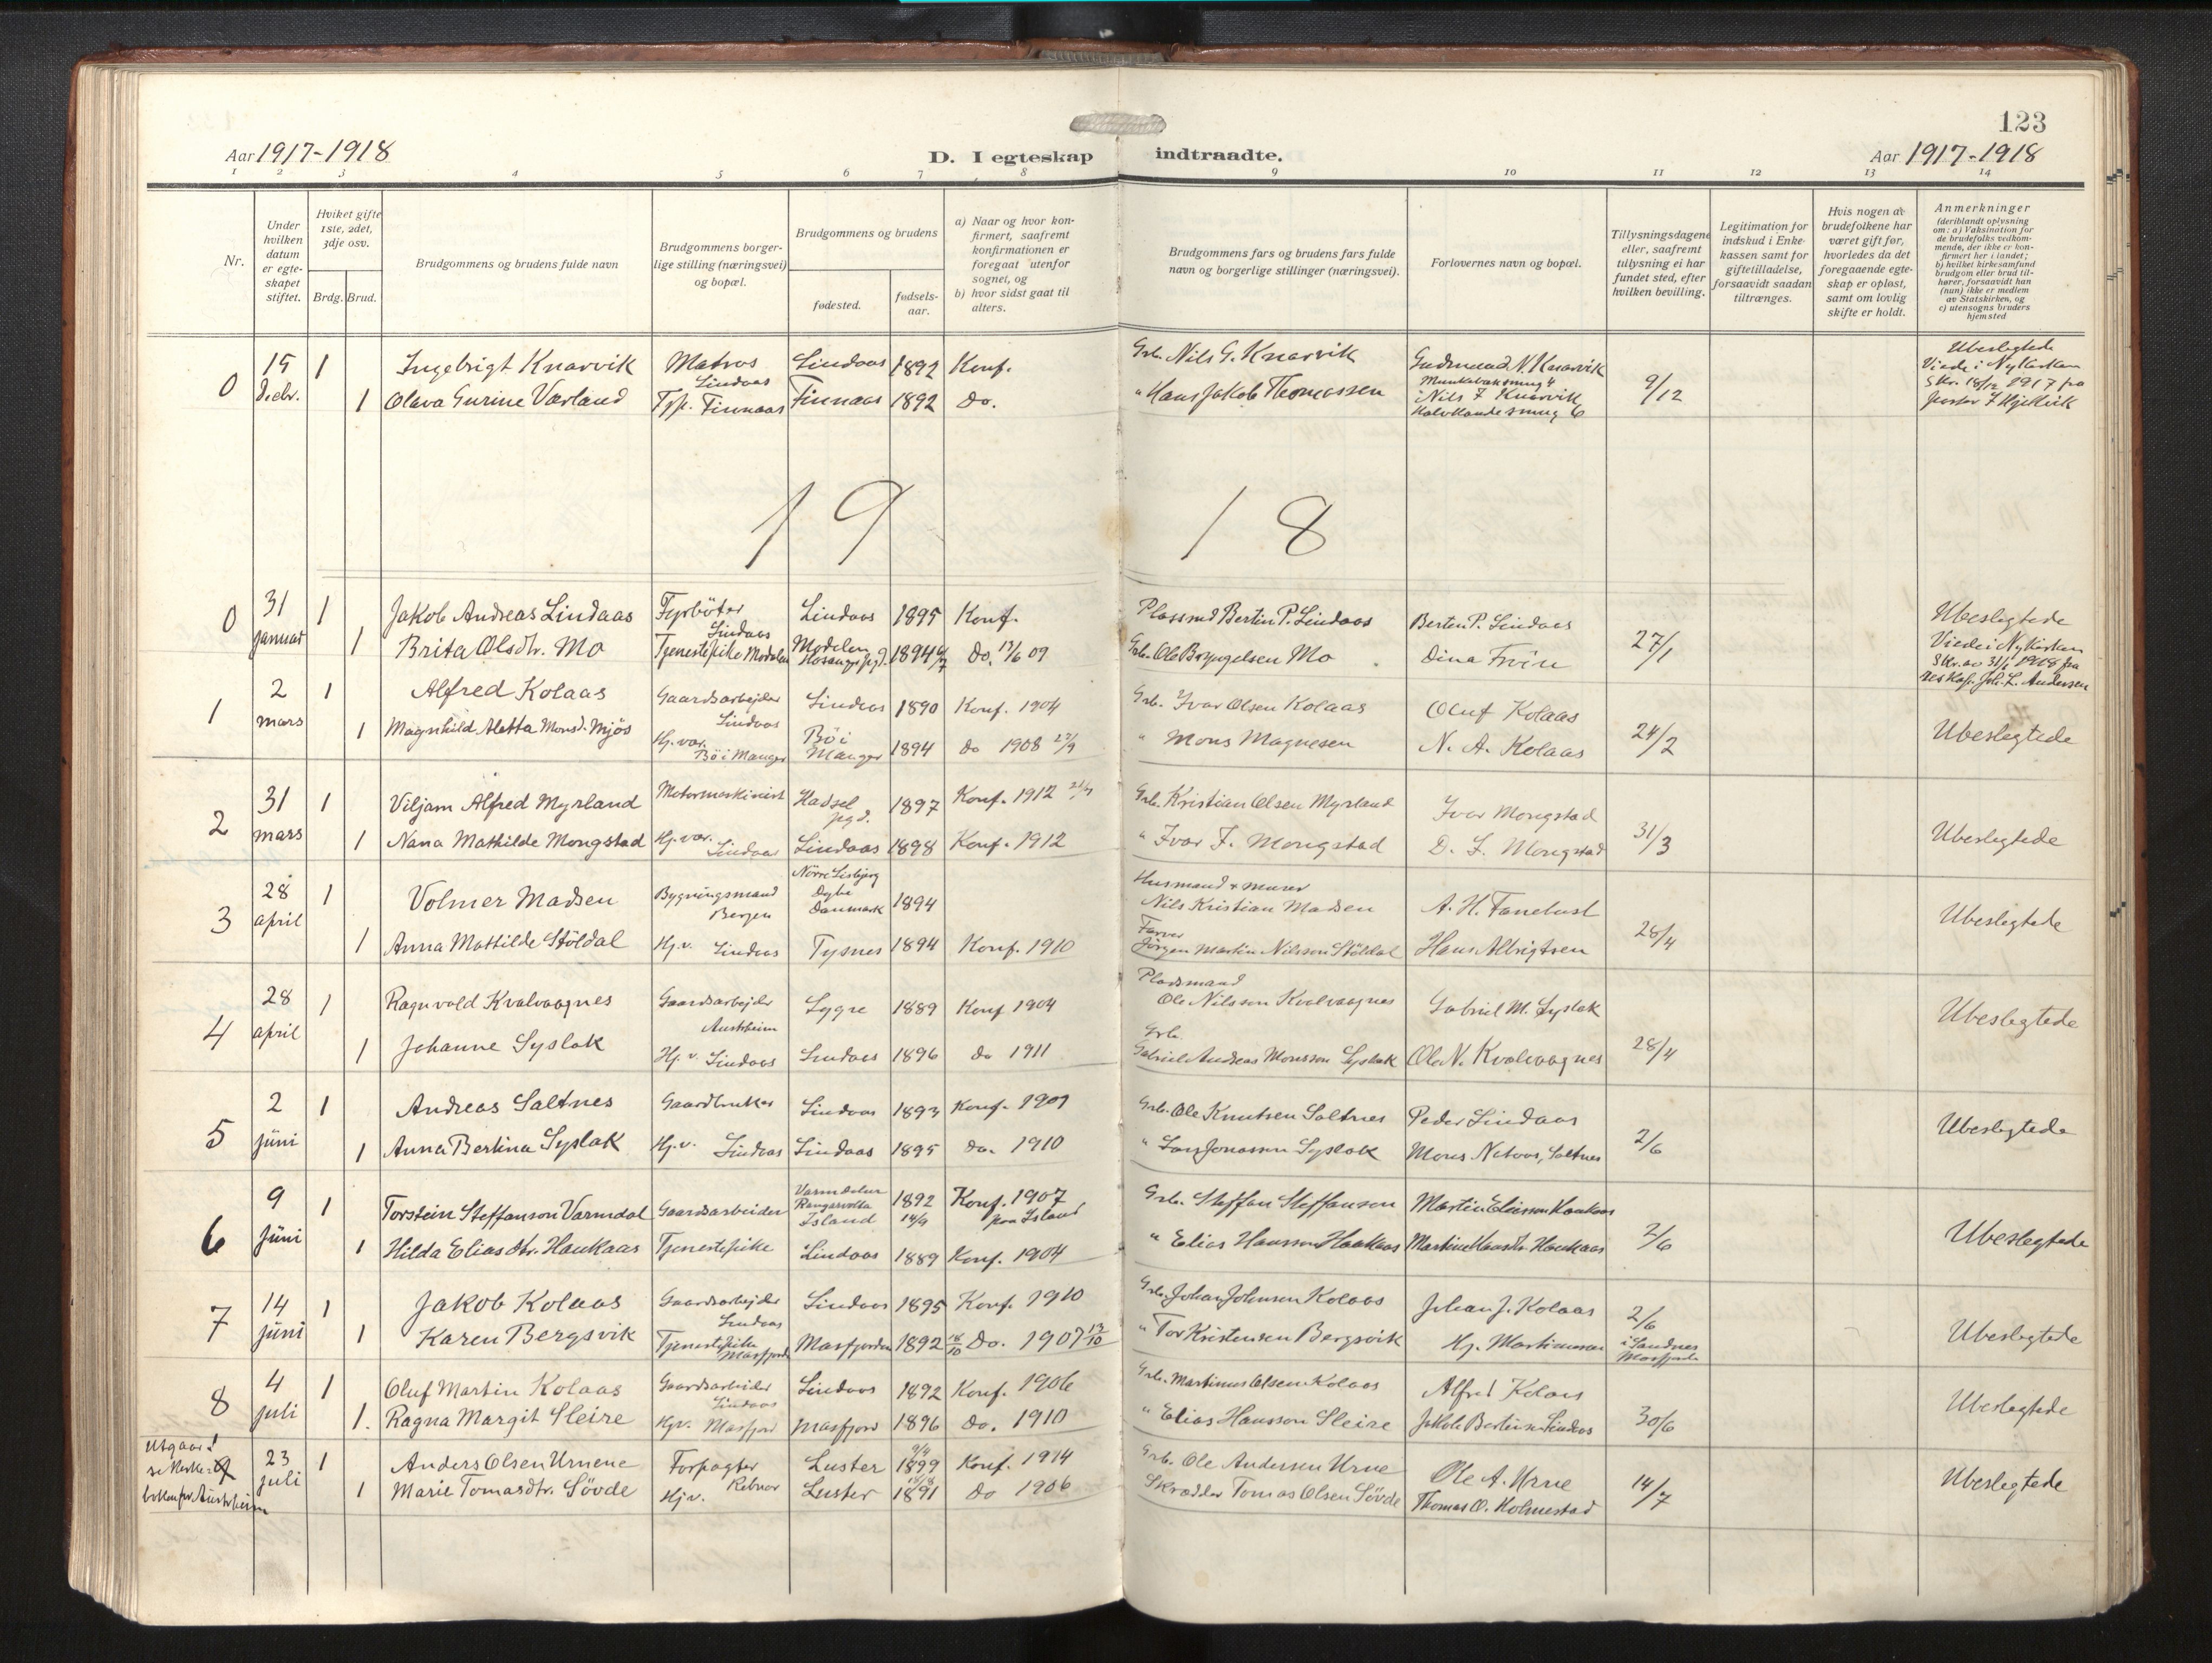 123
Aar 1917-1918
D. I egteskap indtraadte.
Aar 1917-1918
1 2 3 4 5 6 7 8 9 10 11 12 13 14
Nr.
Under hvilken datum er egte- skapet stiftet.
Hviket gifte 1ste, 2det, 3dje osv.
Brdg. Brud.
Brudgommens og brudens fulde navn
Brudgommens borger- lige stilling (næringsvei) og bopæl.
Brudgommens og brudens
fødested.
fødsels- aar.
a) Naar og hvor kon- firmert, saafremt konfirmationen er foregaat utenfor sognet, og
b) hvor sidst gaat til alters.
Brudgommens fars og brudens fars fulde navn og borgerlige stillinger (næringsvei).
Forlovernes navn og bopæl.
Tillysningsdagene eller, saafremt tillysning ei har fundet sted, efter hvilken bevilling.
Legitimation for indskud i Enke- kassen samt for giftetilladelse, forsaavidt saadan tiltrænges.
Hvis nogen av brudefolkene har været gift før, hvorledes da det foregaaende egte- skap er opløst, samt om lovlig skifte er holdt.
Anmerkninger (deriblandt oplysning om: a) Vaksination for de brudefolks vedkom- mende, der ikke er kon- firmert her i landet; b) hvilket kirkesamfund brudgom eller brud til- hører, forsaavidt han (hun) ikke er medlem av Statskirken, og c) utensogns bruders hjemsted
0 15 Decbr. 1 Ingebrigt Knarvik Matros Lindaas Lindaas 1892 Konf. Grb. Nils G. Knarvik Gudmund N. Knarvik 9/12 Ubeslegtede
1 Olava Gurine Værland Tjp. Finnaas Finnaas 1892 Do. " Hans Jakob Thomassen Nils Knarvik Viede i Nykirken
1918
0 31 januar 1 Jakob Andreas Lindaas Fyrbøter Lindaas Lindaas 1895 Konf. Plassmd Bertin P. Lindaas Bertin P. Lindaas 27/1 Ubeslegtede
1 Brita Olsdtr. Mo Tjenestepike Modalen Modalen Hosanger pgd. 1894 Do. 13/6 09 Grb. Ole Bryngelsen Mo Viede i Nykirken
1 2 mars 1 Alfred Kolaas Gaardsarbejder Lindaas Lindaas 1890 Konf. 1904 Grb. Ivar Olsen Kolaas Oluf Kolaas 24/2 Ubeslegtede
1 Magnhild Aletta Monsd. Mjøs Hj. vær. Bø i Manger Bø i Manger 1894 do 1908 27/9 " Mons Magnesen N. A. Kolaas
2 31 mars 1 Viljam Alfred Myrland Motormaskinist Hadsel pgd. 1897 Konf. 1912 Grb. Kristian Olsen Myrland Ivar Mongstad 31/3 Ubeslegtede
1 Nana Mathilde Mongstad Hj. vær. Lindaas Lindaas 1898 Konf. 1912 " Ivar F. Mongstad D. I. Mongstad
3 28 april 1 Volmer Madsen Bygningsmand Bergen Dybe Danmark 1894 Husmand & murer Nils Kristian Madsen 28/4 Ubeslegtede
1 Anna Mathilde Støldal Hj. v. Lindaas Tysnes 1894 Konf. 1910 Farver Jørgen Martin Nilsson Støldal Hans Albrigtsen
4 28 april 1 Ragnvald Kvalvaagnes Gaardsarbejder Austrheim Lygre 1889 Konf 1904 Pladsmand Ole Nilsson Kvalvaagnes Gabriel M. Syslak 28/4 Ubeslegtede
1 Johanne Syslak Hj. v. Lindaas Lindaas 1896 do 1911 Grb. Gabriel Andreas Monsson Syslak Ole N. Kvalvaagnes
5 2 juni 1 Andreas Saltnes Gaardbruker Lindaas 1893 Konf. 1909 Grb. Ole Knutsen Saltnes Peder Lindaas 2/6 Ubeslegtede
1 Anna Bertina Syslak Hj. v. Lindaas Lindaas 1895 do. 1910 " Lars Jonassen Syslak Mons Nataas, Saltnes
6 9 juni 1 Torstein Steffanson Varmdal Gaardsarbeider Island 1892 14/9 Konf. 1907 paa Island Grb. Steffan Steffansen Martin Eliassen Haukaas 2/6 Ubeslegtede
1 Hilda Eliasdtr. Haukaas Tjenestepike Lindaas 1889 Konf. 1904 " Elias Hansson Haukaas Martin Haukaas
7 14 juni 1 Jakob Kolaas Gaardsarbejder Lindaas Lindaas 1895 Konf. 1910 Grb. Johan Johnsen Kolaas Johan J. Kolaas 2/6 Ubeslegtede
1 Karen Bergsvik Tjenestepike Masfjorden Masfjorden 1892 18/10 Do. 1907 13/10 " Tor Kristensen Bergsvik Hj. Martinussen i Sandnes Masfjorden
8 4 juli 1 Oluf Martin Kolaas Gaardsarbeider Lindaas Lindaas 1892 Konf. 1906 Grb. Martinus Olsen Kolaas Alfred Kolaas 30/6 Ubeslegtede
1. Ragna Margit Sleire Hjv. Masfjord Masfjord 1896 do. 1910 " Elias Hansson Sleire Jakob Bertinsen Lindaas
Utgaar! boken for Austrheim 23 juli 1 Anders Olsen Urnene Forpagter Luster 1899 Konf. 1914 Grb. Ole Andersen Urne Ole A. Urne 14/7 Ubeslegtede
1 Marie Tomasdtr. Søvde Hjv. Luster 1891 do 1906 Skrædder Tomas Olsen Søvde Thomas O. Holmestad